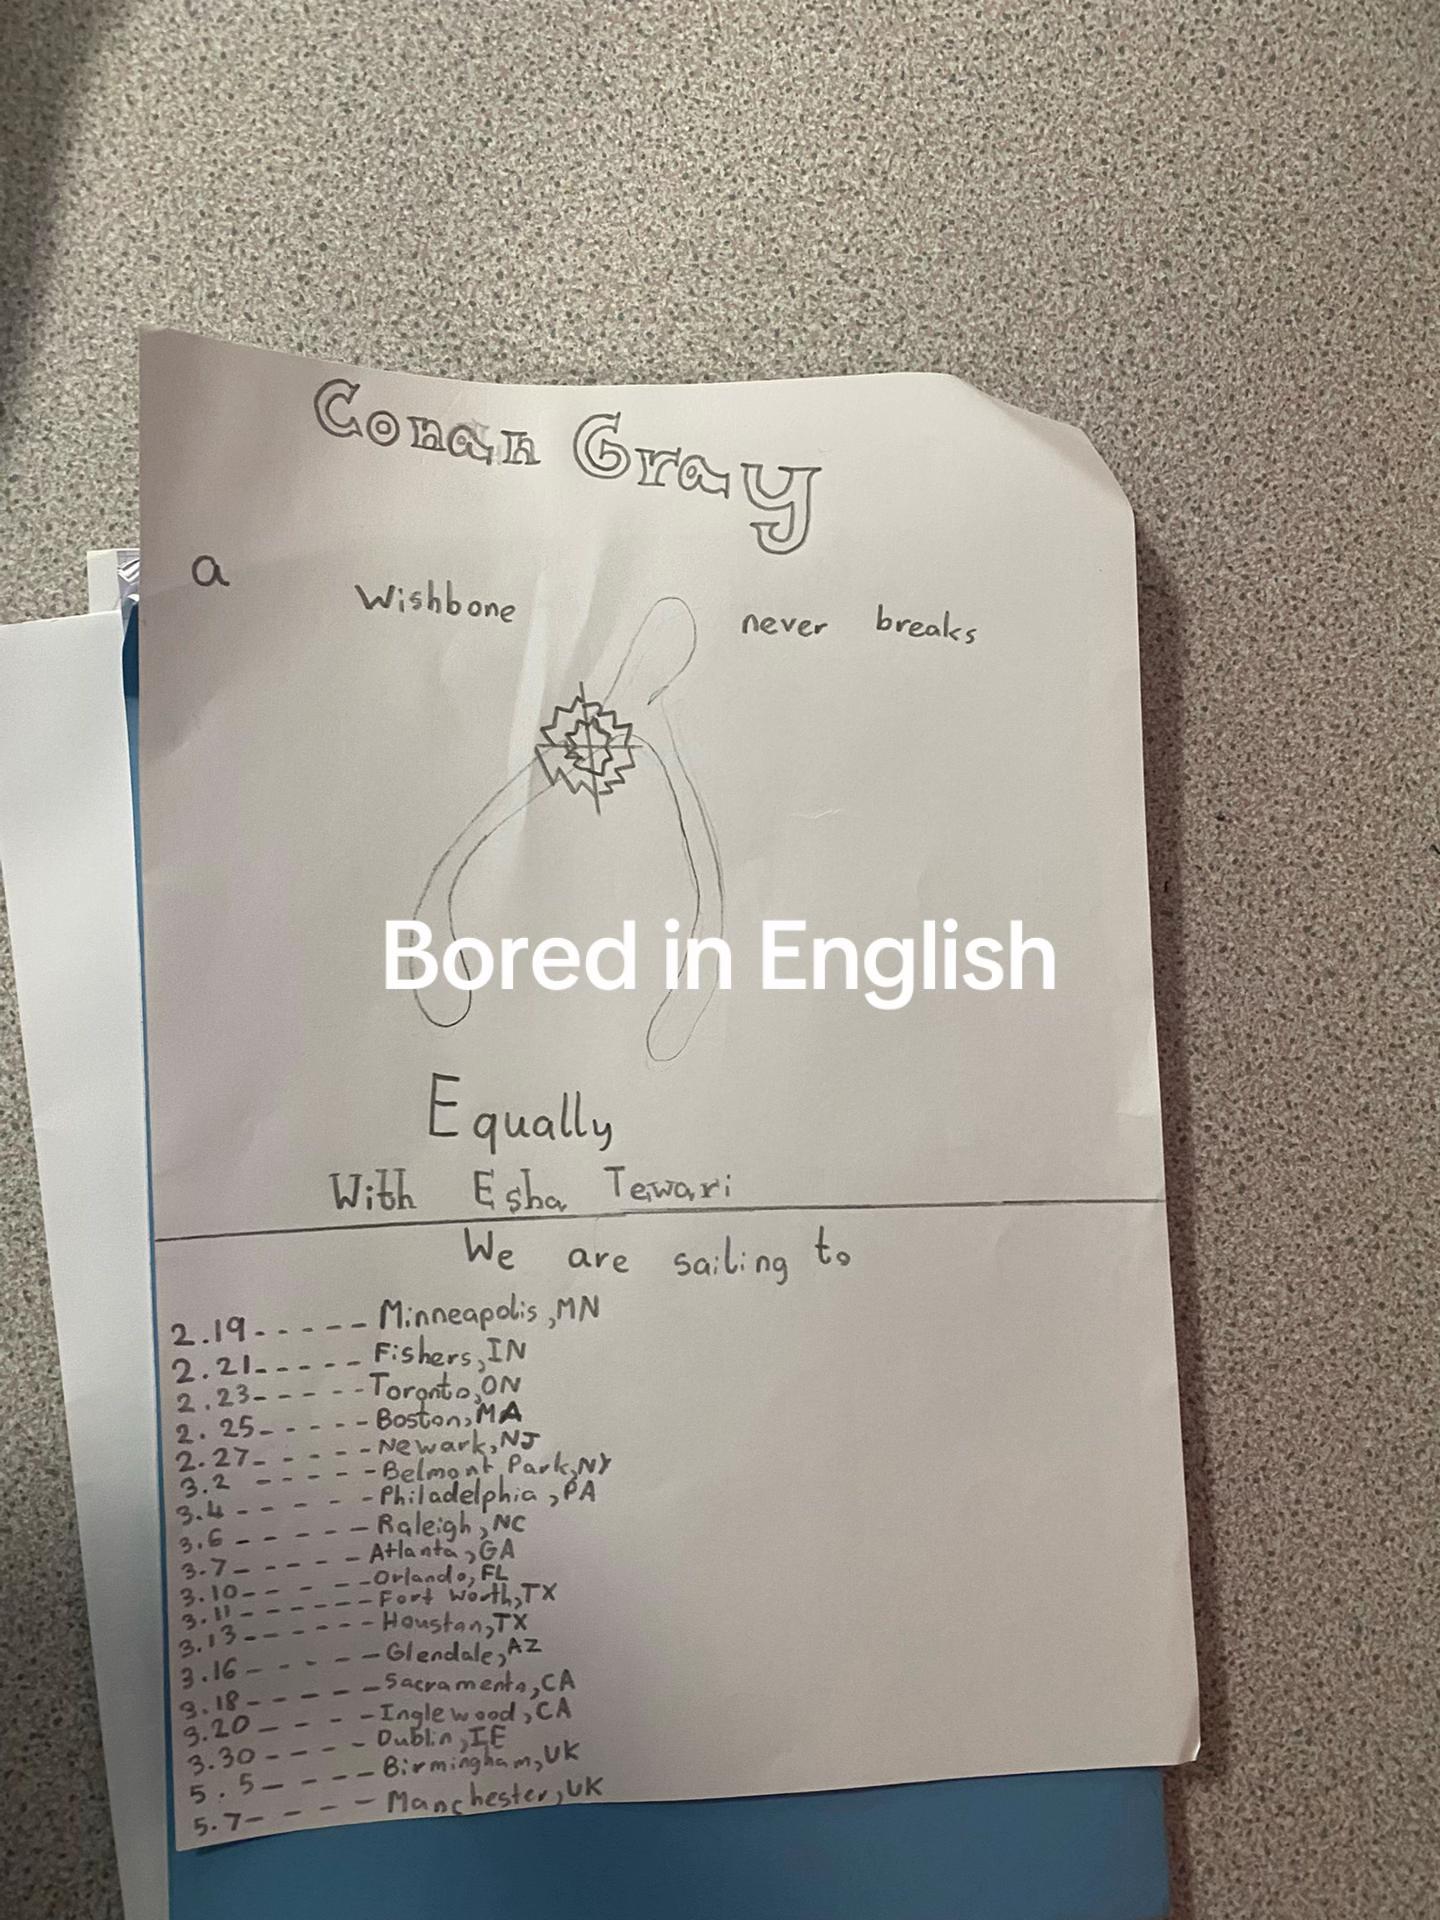 Conan Gray
a Wishbone never breaks
Bored in English
Equally
With Esha Tewari
We are sailing to
2.19----- Minneapolis, MN
2.21----- Fishers, IN
2.23----- Toronto, ON
2.25----- Boston, MA
2.27----- Newark, NJ
3.2 ----- Belmont Park, NY
3.4 ----- Philadelphia, PA
3.6 ----- Raleigh, NC
3.7----- Atlanta, GA
3.10----- Orlando, FL
3.11------ Fort Worth, TX
3.13------ Houston, TX
3.16----- Glendale, AZ
3.18----- Sacramento, CA
3.20---- Inglewood, CA
3.30---- Dublin, IE
5.5---- Birmingham, UK
5.7---- Manchester, UK